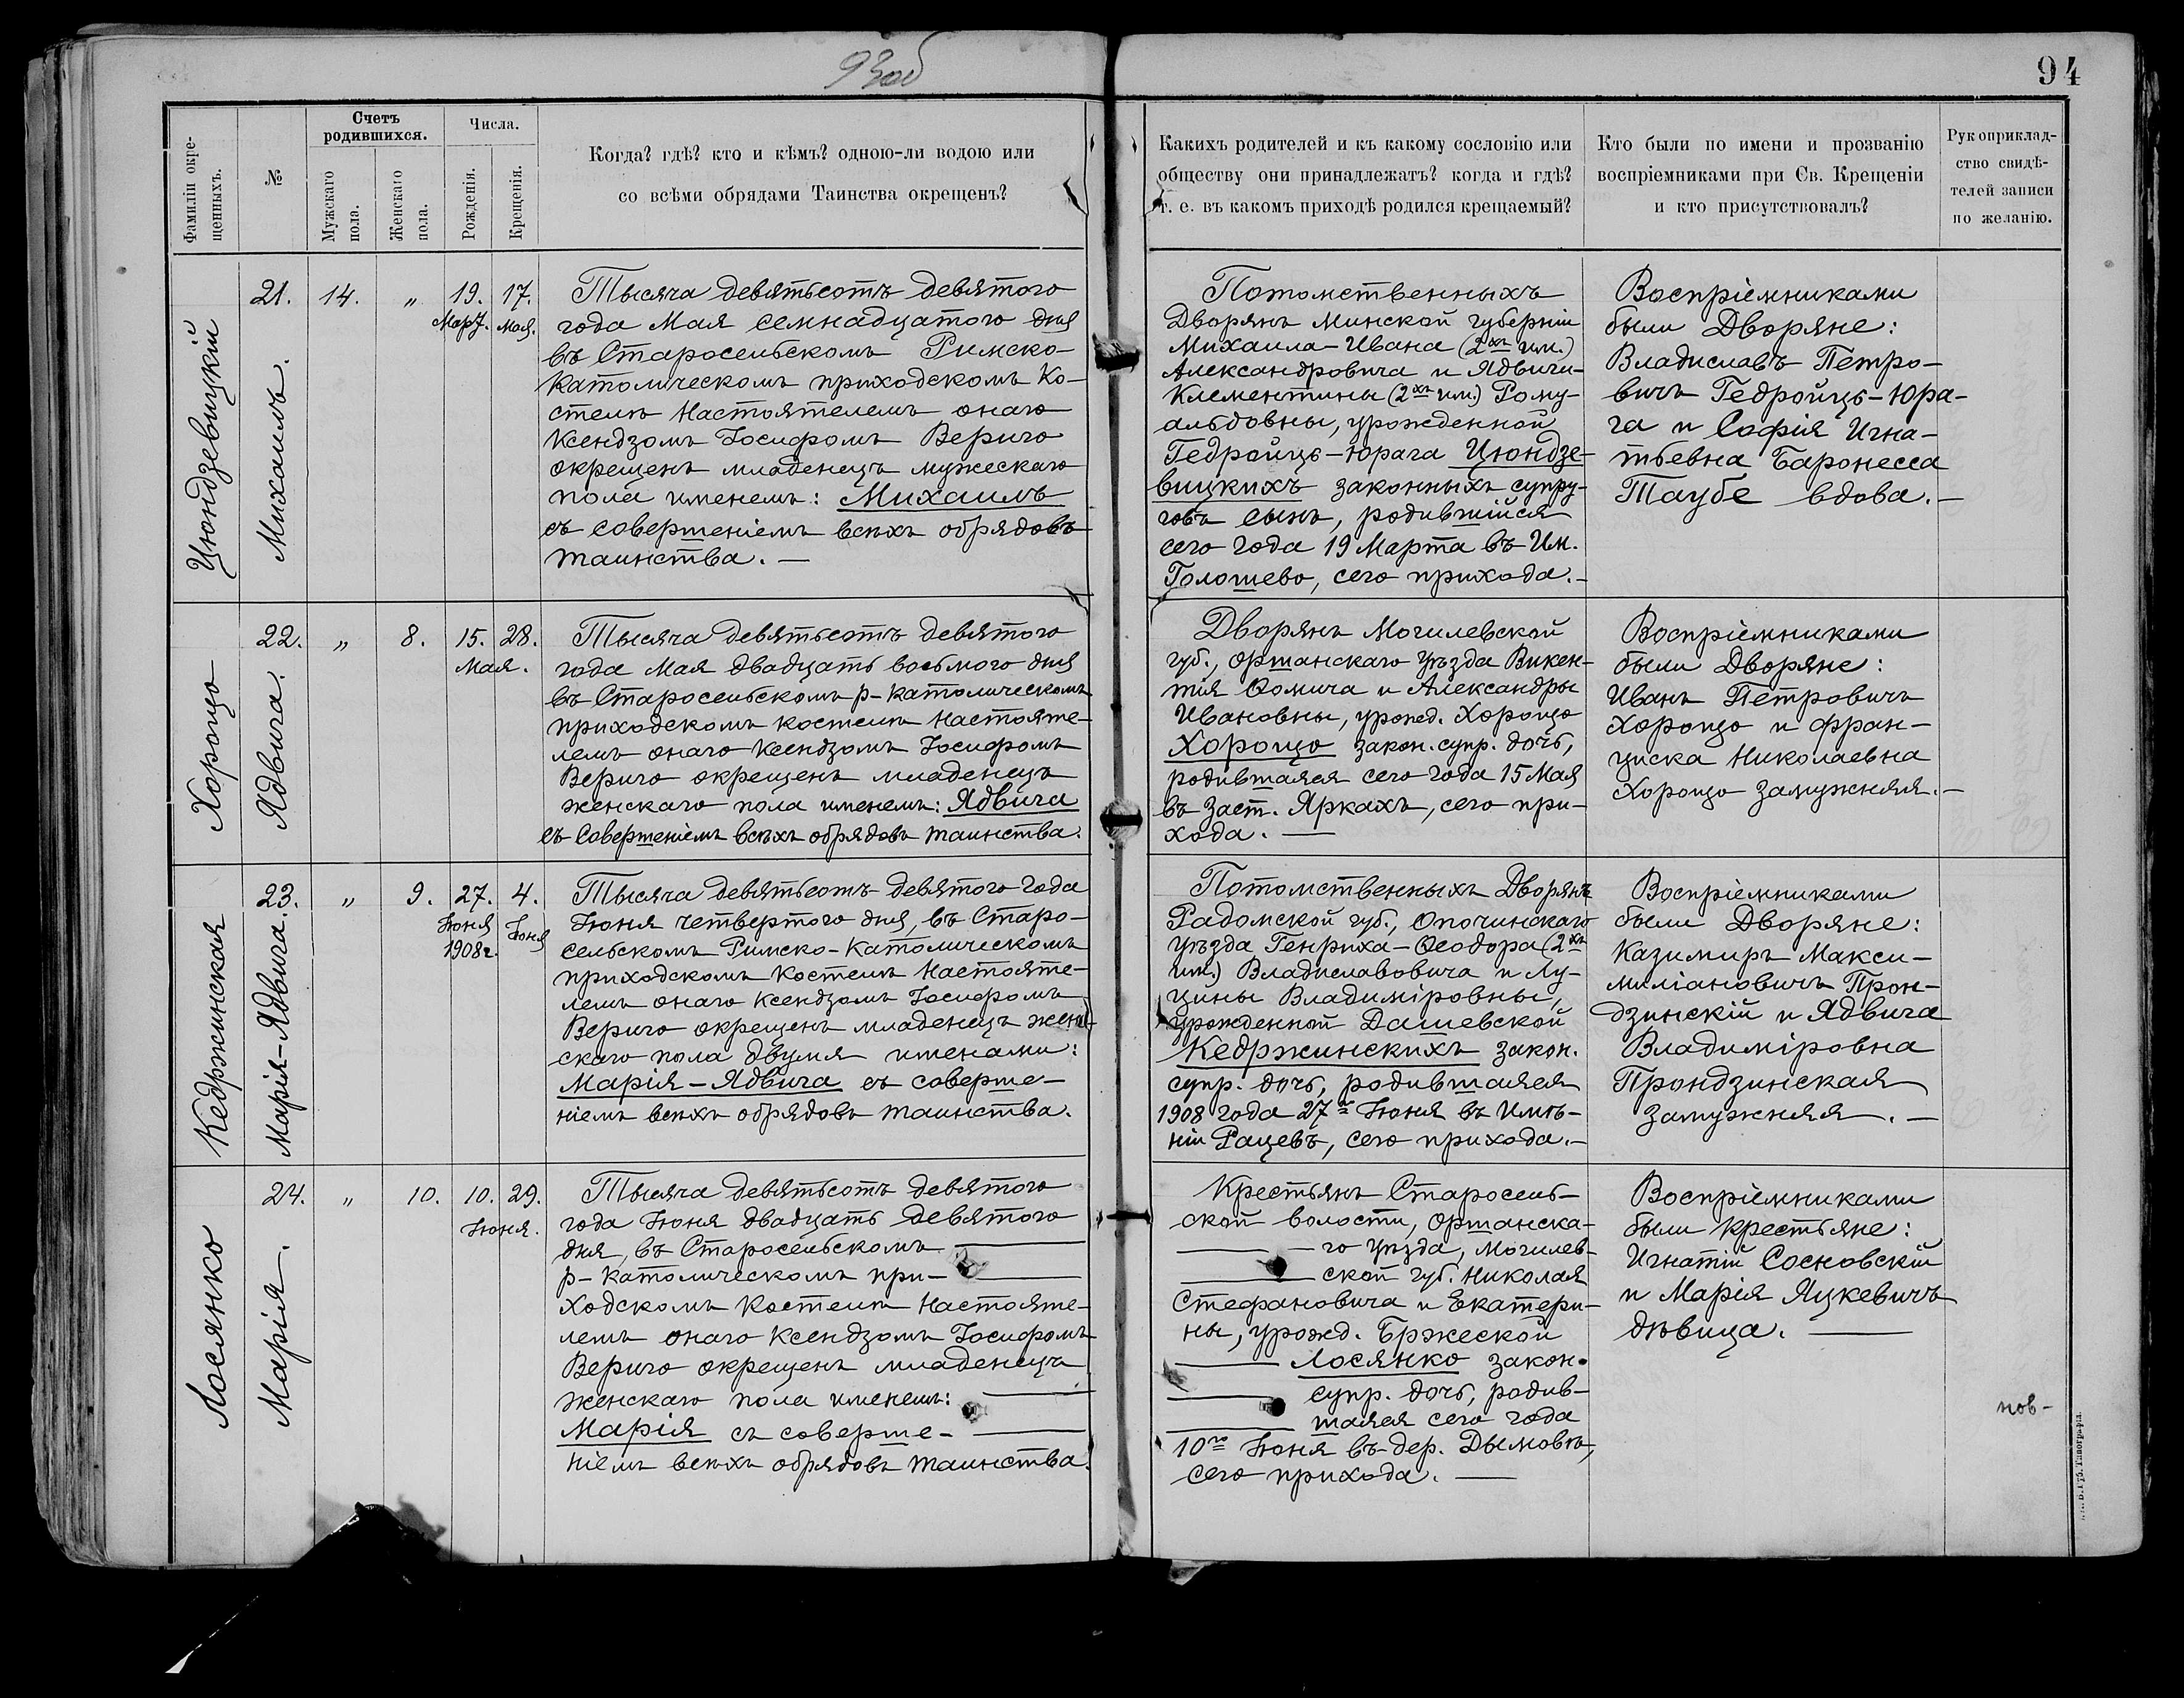 93об
94
Фамиліи окре-
щенныхъ.
№
Счетъ
родившихся.
Мужскаго
пола.
Женскаго
пола.
Числа.
Рожденія.
Крещенія.
Когда? гдѣ? кто и кѣмъ? одною-ли водою или
со всѣми обрядами Таинства окрещенъ?
Какихъ родителей и къ какому сословію или
обществу они принадлежатъ? когда и гдѣ?
т. е. въ какомъ приходѣ родился крещаемый?
Кто были по имени и прозванію
воспріемниками при Св. Крещеніи
и кто присутствовалъ?
Рукоприклад-
ство свидѣ-
телей записи
по желанію.
Цюндзевицкій
Михаилъ.
21. 14. „ 19. 17.
Мар. Мая.
Тысяча девятьсотъ девятого
года Мая семнадцатого дня
въ Старосельскомъ Римско-
Католическомъ приходскомъ Ко-
стелѣ Настоятелемъ онаго
Ксендзомъ Іосифомъ Вериго
окрещенъ младенецъ мужескаго
пола именемъ: Михаилъ
съ совершеніемъ всѣхъ обрядовъ
таинства. —
Потомственныхъ
Дворянъ Минской губерніи
Михаила-Ивана (2хъ им.)
Александровича и Ядвиги-
Клементины (2хъ им.) Рому-
альдовны, урожденной
Гедройць-Юрага Цюндзе-
вицкихъ законныхъ супру-
говъ сынъ, родившійся
сего года 19 Марта въ Им.
Голошево, сего прихода.—
Воспріемниками
были Дворяне:
Владиславъ Петро-
вичъ Гедройць-Юра-
га и Софія Игна-
тьевна Баронесса
Таубе вдова.—
Хороцо
Ядвига.
22. „ 8. 15. 28.
Мая.
Тысяча девятьсотъ девятого
года Мая двадцать восьмого дня
въ Старосельскомъ р-католическомъ
приходскомъ костелѣ Настояте-
лемъ онаго ксендзомъ Іосифомъ
Вериго окрещенъ младенецъ
женскаго пола именемъ: Ядвига
съ совершеніемъ всѣхъ обрядовъ таинства.
Дворянъ Могилевской
губ., Оршанскаго Уѣзда Викен-
тія Ѳомича и Александры
Ивановны, урожд. Хороцо
Хороцо закон. супр. дочь,
родившаяся сего года 15 Мая
въ заст. Яркахъ, сего при-
хода. —
Воспріемниками
были Дворяне:
Иванъ Петровичъ
Хороцо и Фран-
циска Николаевна
Хороцо замужняя.—
Кедржинская
Марія-Ядвига.
23. „ 9. 27. 4.
Іюня Іюня
1908г.
Тысяча девятьсотъ девятого года
Іюня четвертого дня, въ Старо-
сельскомъ Римско-Католическомъ
приходскомъ костелѣ Настояте-
лемъ онаго ксендзомъ Іосифомъ
Вериго окрещенъ младенецъ жен-
скаго пола двумя именами:
Марія-Ядвига съ соверше-
ніемъ всѣхъ обрядовъ таинства.
Потомственныхъ Дворянъ
Радомской губ., Опочинскаго
уѣзда Генриха-Ѳеодора (2хъ
им.) Владиславовича и Лу-
цины Владиміровны,
урожденной Дашевской
Кедржинскихъ закон.
супр. дочь, родившаяся
1908 года 27го Іюня въ Имѣ-
ніи Рацевъ, сего прихода.—
Воспріемниками
были Дворяне:
Казимиръ Макси-
миліановичъ Прон-
дзинскій и Ядвига
Владиміровна
Прондзинская
замужняя. —
Лосянко
Марія.
24. „ 10. 10. 29.
Іюня.
Тысяча девятьсотъ девятого
года Іюня двадцать девятого
дня, въ Старосельскомъ —
р-католическомъ при- —
ходскомъ костелѣ Настояте-
лемъ онаго ксендзомъ Іосифомъ
Вериго окрещенъ младенецъ
женскаго пола именемъ: —
Марія съ соверше- —
ніемъ всѣхъ обрядовъ таинства.
Крестьянъ Старосель-
ской волости, Оршанска-
— го уѣзда, Могилев-
— ской губ. Николая
Стефановича и Екатери-
ны, урожд. Бржеской
— Лосянко закон.
— супр. дочь, родив-
— шаяся сего года
10го Іюня въ дер. Дымовѣ,
сего прихода. —
Воспріемниками
были крестьяне:
Игнатій Сосновскій
и Марія Яцкевичъ
дѣвица. —
нов-
Губ. Типографія.